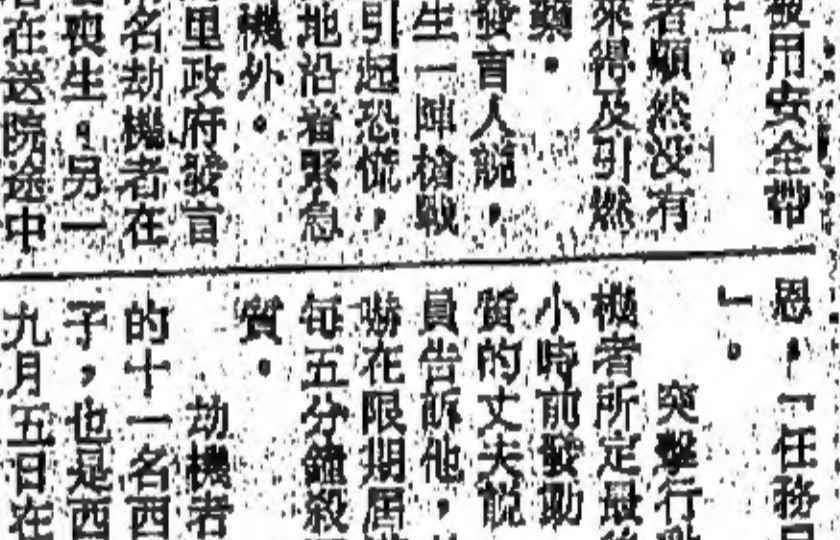 被用安全帶
上。
者顯然沒有
來得及引燃
藥。
發言人說，
生一陣槍戰
引起恐慌，
地沿着緊急
機外。
里政府發言
名劫機者在
喪生。另一
在送院途中
恩，「任務
」。
突擊行
機者所定最
小時前發動
質的丈夫說
員告訴他，
嚇在限期屆
每五分鐘殺
質。
劫機者
的十一名西
子，也是西
九月五日在